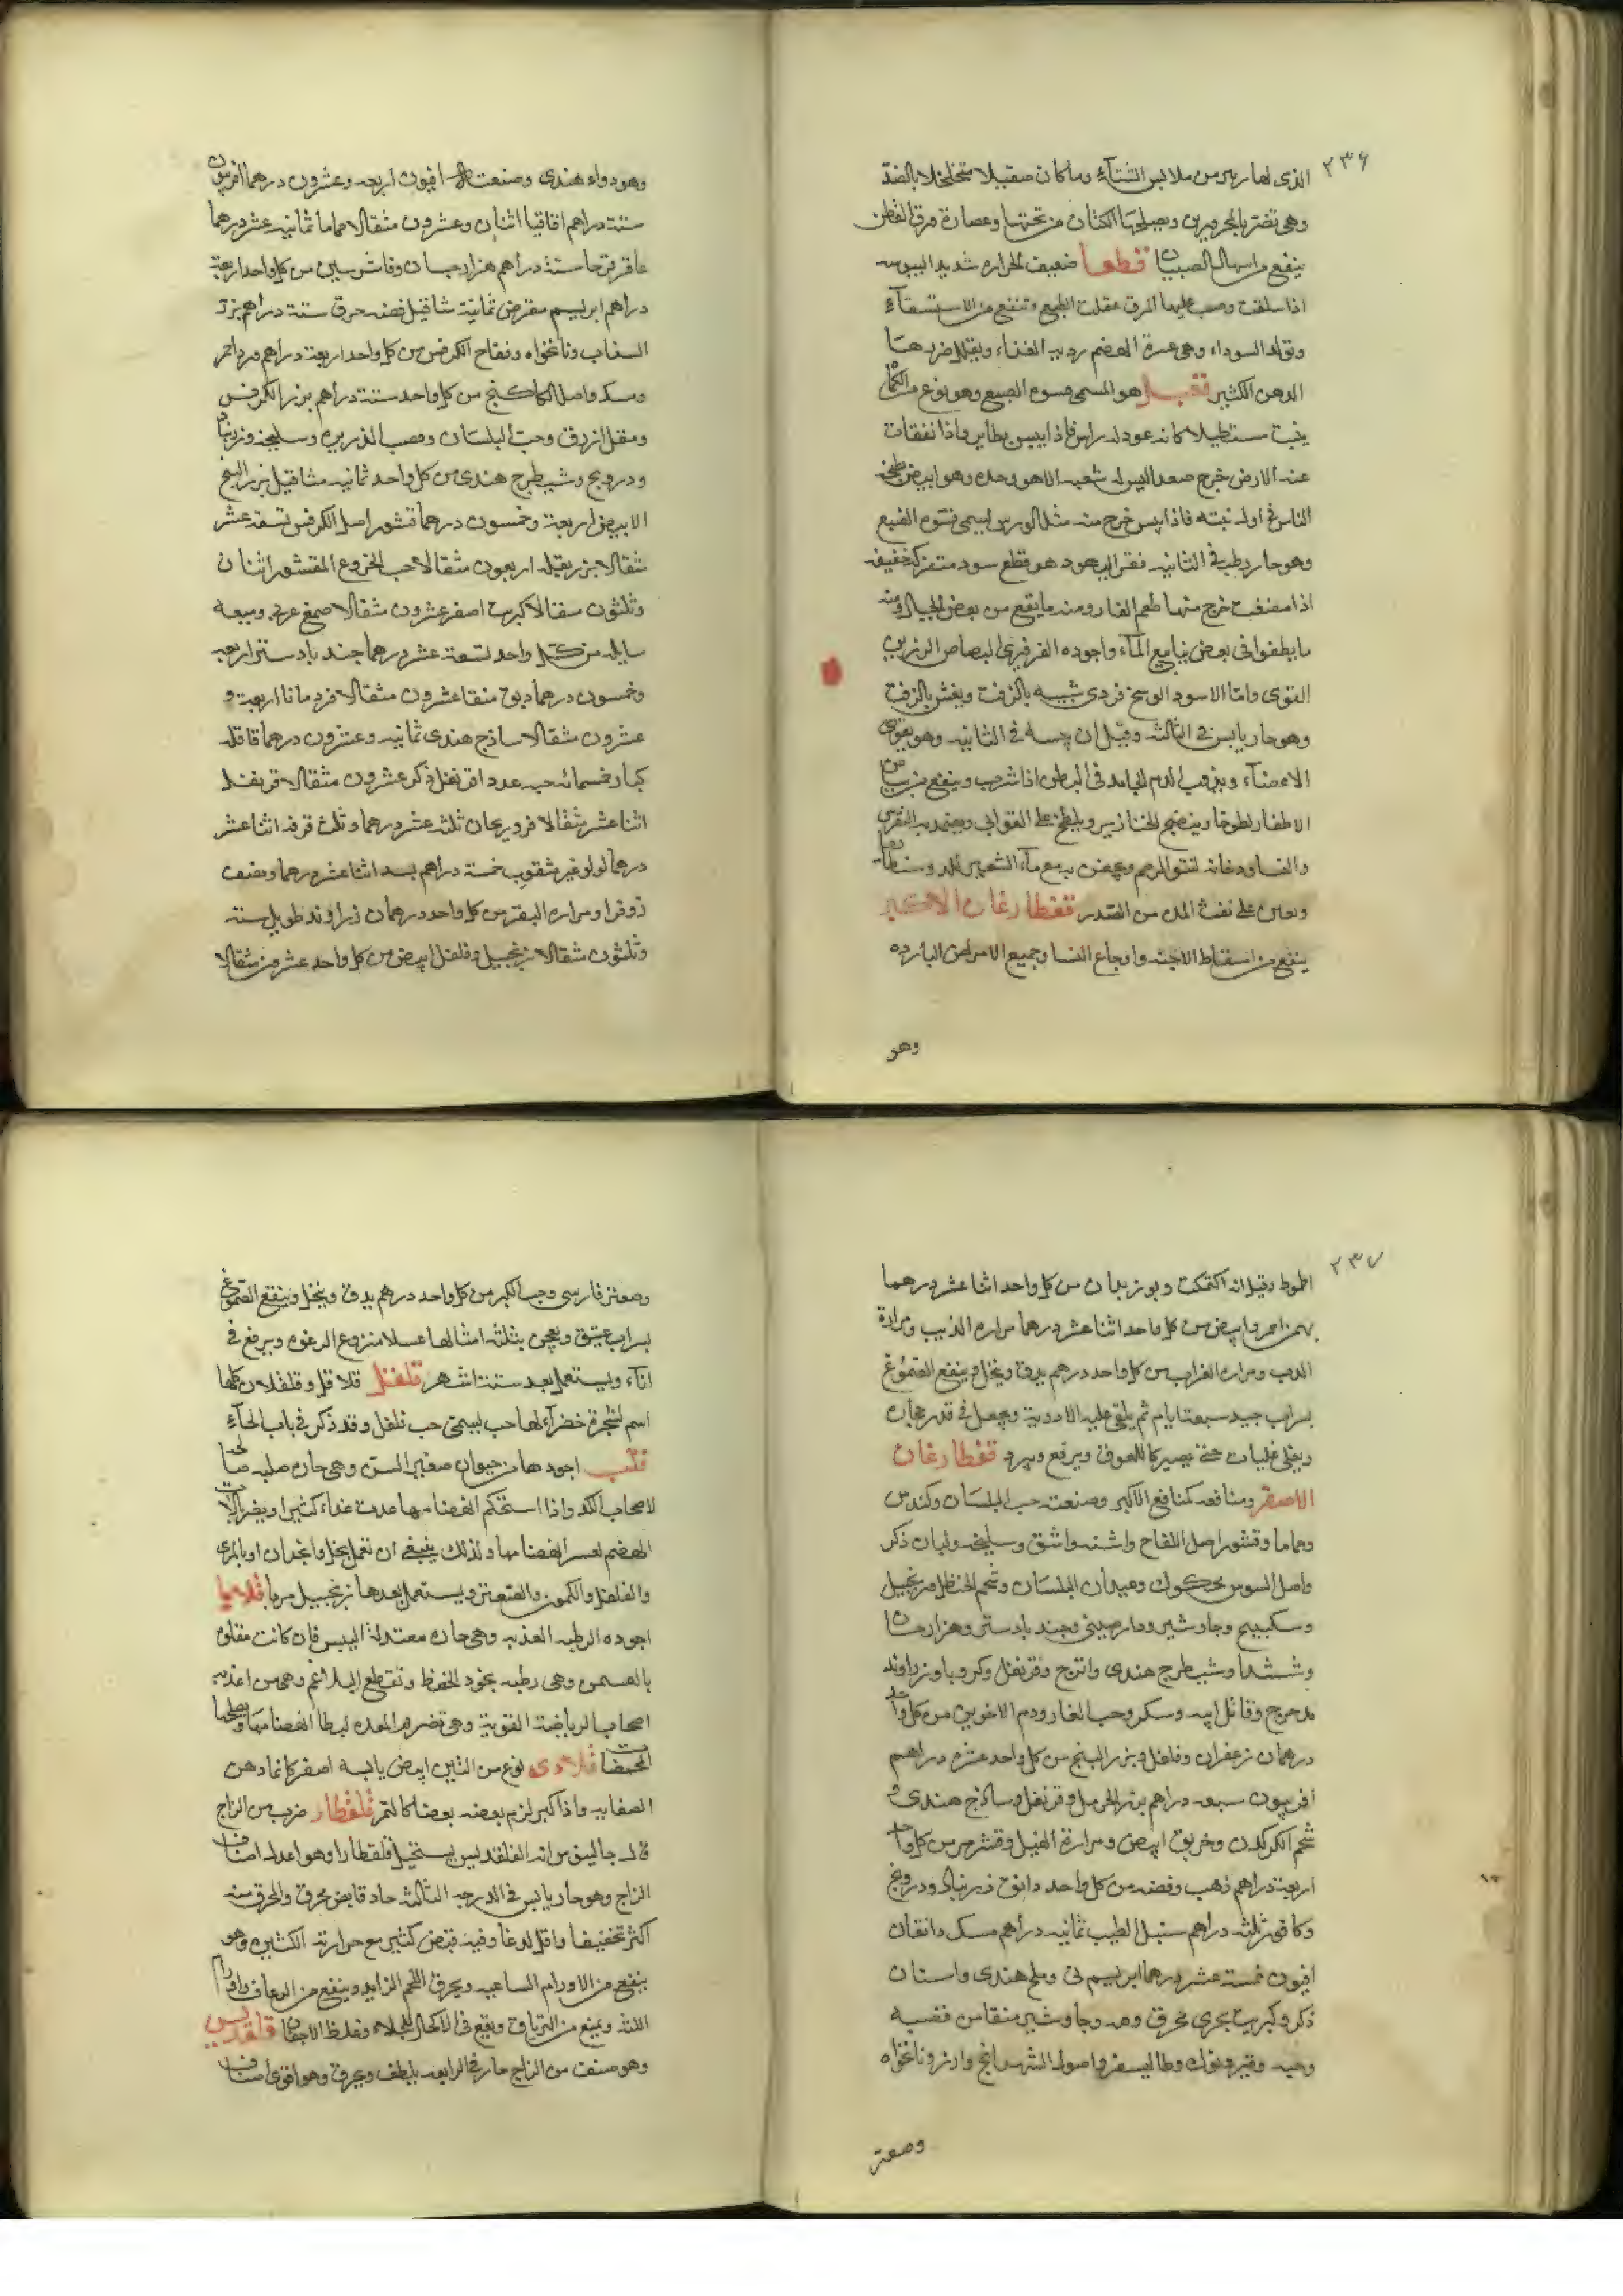 ٢٣۶
الذى لها زبير من ملابس الشتآء وما كان صقيلا متخلخلا بالضد
وهى تضر بالمحرورين ويصلحها الكتان من تحتها وعصارة ورق القطن
ينفع من اسهال الصبيان قطعا ضعيف الحراره شديد اليبوسه
اذا سلقت وصب عليها المرق عقلت الطبع وتنفع من الاستسقآء
وتولد السوداء وهى عسرة الهضم رديه الغذاء ويقلل ضررها
الدهن الكثير هو المسمى فسوه الضبع وهو نوع من الكمأ
ينبت مستطيلا كانه عود له راس فاذا يبس تطاير واذا تفقات
عنه الارض خرج صعدا ليس له شعب الا هو وحده وهو ابيض
الناس فى اول نبته فاذا يبس خرج منه مثل الورس يسمى فسوه الضبع
وهو حار رطب فى الثانيه قفر اليهود هو قطع سود متفركه خفيفه
اذا مضغت خرج منها طعم القار ومنه ما يقع من بعض الجبال ومنه
ما يطفوا فى بعض ينابيع المآء واجوده الفرفيرى البصاص الرزين
القوى واما الاسود الوسخ فردى شبيه بالزفت ويغش بالزفت
وهو حار يابس فى الثالثه وقيل ان يبسه فى الثانيه وهو يقوى
الاعضآء ويذوب الدم الجامد فى البطن اذا شرب وينفع من بياض
الاظفار لطوخا وينضج الخنازير ويلطخ على القوابى ويضمد به النقرس
والنسا ودخانه لنتو الرحم ويحقن به مع مآء الشعير
ويعين على نفث المده من الصدر قفطارغان الاكبر
ينفع من اسقاط الاجنه واوجاع النسا وجميع الامراض البارده
وهو
وهو دواء هندى وصنعته افيون اربعه وعشرون درهما افربيون
ستة دراهم اقاقيا اثنان وعشرون مثقالا حماما ثمانيه عشر درهما
عاقرقرحا ستة دراهم هزارجسان وفاشرستين من كل واحد اربعة
دراهم ابريسم مقرض ثمانية مثاقيل فضه محرق ستة دراهم بزر
السذاب ونانخواه وفقاح الكرفس من كل واحد اربعة دراهم ورد احمر
وسك واصل الكاكنج من كل واحد ستة دراهم بزر الكرفس
ومقل ازرق وحب البلسان وقصب الذريره وسليخه وزرنباد
ودرونج وشيطرج هندى من كل واحد ثمانيه مثاقيل بزر البنج
الابيض اربعة وخمسون درهما قشور اصل الكرفس تسعة عشر
مثقالا بزر بقله اربعون مثقالا حب الخروع المقشور اثنان
وثلثون مثقالا كبريت اصفر عشرون مثقالا صمغ عربى وميعه
سايله من كل واحد تسعة عشر درهما جندبادستر اربعه
وخمسون درهما دبق منقا عشرون مثقالا قردمانا اربعة و
عشرون مثقالا ساذج هندى ثمانيه وعشرون درهما قاقله
كبار خمسمائه حبه عددا قرنفل ذكر عشرون مثقالا قرنفل
اثنا عشر مثقالا فروريحان ثلثه عشر درهما وثلث قرفه اثنا عشر
درهما لولو غير مثقوب خمسة دراهم بسد اثنا عشر درهما ونصف
زوفرا ومراره البقر من كل واحد درهمان زراوند طويل سته
وثلثون مثقالا زنجبيل وفلفل ابيض من كل واحد عشرون مثقالا
٢٣٧
اطموط وقيل انه اكتمكت وبوزيدان من كل واحد اثنا عشر درهما
بهمن احمر وابيض من كل واحد اثنا عشر درهما مراره الذيب ومرارة
الدب ومراره الغراب من كل واحد درهم يدق وينخل وينقع الصموغ
بشراب جيد سبعة ايام ثم يلقى عليه الادوية ويجعل فى قدر حجاره
ويغلى غليات حتى يصير كاللعوق ويرفع ويبرد قفطارغان
الاصغر ومنافعه كمنافع الاكبر وصنعته حب البلسان وكندس
وحماما وقشور اصل اللفاح واشنه واشق وسليخه ولبان ذكر
واصل السوس محكوك وعيدان البلسان وشحم الحنظل وزنجبيل
وسكبينج وجاوشير ودارصينى وجندبادستر وهزارجسان
وششدا وشيطرج هندى واترج وقرنفل وكرويا وزراوند
مدحرج وقاتل ابيه وسكر وحب الغار ودم الاخوين من كل واحد
درهمان زعفران وفلفل وبزر البنج من كل واحد عشره دراهم
افربيون سبعه دراهم بزر الحرمل وقرنفل وساذج هندى و
شحم الكركدن وخربق ابيض ومرارة الفيل وقشر من كل واحد
اربعة دراهم ذهب وفضه من كل واحد دانق زرنباد ودرونج
وكافور ثلثه دراهم سنبل الطيب ثمانيه دراهم مسك دانقان
افيون خمسة عشر درهما ابريسم نى وملح هندى واسنان
ذكر وكبريت بحرى محرق ومر وجاوشير منقا من قصبه
وحبه وطاليسفر واصول الشهدانج وارز ونانخواه
وصعتر
وصعتر فارسى وحب الكبر من كل واحد درهم يدق وينخل وينقع الصموغ
بشراب عتيق ويعجن بثلثه امثالها عسلا منزوع الرغوه ويرفع فى
انآء ويستعمل بعد ستة اشهر قلفل قلاقل وقلقلان كلها
اسم لشجرة خضرآء لها حب يسمى حب قلقل وقد ذكر فى باب الحآء
قلب اجودها من حيوان صغير السن وهى حاره صلبه
لاصحاب الكد واذا استحكم انهضامها غدت غذاء كثيرا ويضر بالات
الهضم لعسر انهضامها ولذلك ينبغى ان تعمل بخل وانجدان او بالمرى
والفلفل والكمون والصعتر ويستعمل بعدها زنجبيل مربا قلايا
اجوده الرطبه العذبه وهى حاره معتدلة اليبس فان كانت مقلوه
بالسمن وهى رطبه تجود الحفظ وتقطع البلاغم وهى من اغذيه
اصحاب الرياضة القوية وهى تضر المعده لبطا انهضامها ويصلحها
المحمضات قلاودى نوع من التين ابيض يابسه اصفر كانما دهن
الصفا به واذا كبر لزم بعضه بعضا كالتمر قلقطار ضرب من الزاج
قال جالينوس انه القلقديس يستحيل قلقطارا وهو اعدل اصناف
الزاج وهو حار يابس فى الدرجه الثالثه حاد قابض محرق والمحرق منه
اكثر تجفيفا واقل لذعا وفيه قبض كثير مع حرارته الكثيره وهو
ينفع من الاورام الساعيه ويحرق اللحم الزايد وينفع من الرعاف واورام
اللثه ويمنع من الترياق ويقع فى الاكحال للجلاء وغلظ الاجفان قلقديس
وهو صنف من الزاج حار فى الرابعه يلطف ويحرق وهو اقوى اصناف